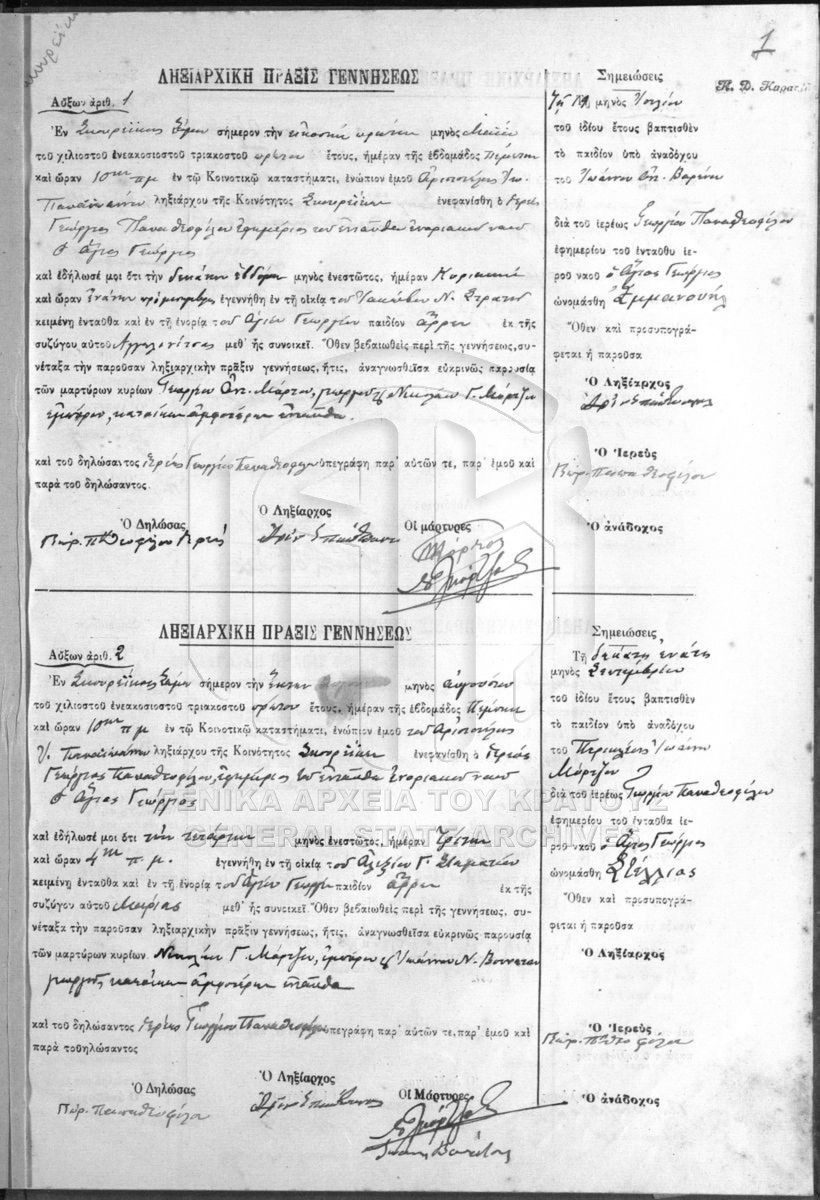 1
ΛΗΞΙΑΡΧΙΚΗ ΠΡΑΞΙΣ ΓΕΝΝΗΣΕΩΣ
Αὔξων ἀριθ. 1
Ἐν Σκουρέϊκοις Σάμου σήμερον τὴν εἰκοστὴν πρώτην μηνὸς Μαΐου
τοῦ χιλιοστοῦ ἐνεακοσιοστοῦ τριακοστοῦ πρώτου ἔτους, ἡμέραν τῆς ἑβδομάδος Πέμπτην
καὶ ὥραν 10ην πμ ἐν τῷ Κοινοτικῷ καταστήματι, ἐνώπιον ἐμοῦ Ἀριστοτέλης Ἰω.
Παπαϊωάννου ληξιάρχου τῆς Κοινότητος Σκουρέϊκων ἐνεφανίσθη ὁ ἱερεὺς
Γεώργιος Παπαθεοφίλου ἐφημέριος τοῦ ἐνταῦθα ἐνοριακοῦ ναοῦ
ὁ Ἅγιος Γεώργιος
καὶ ἐδήλωσέ μοι ὅτι τὴν δεκάτην ἑβδόμην μηνὸς ἐνεστῶτος, ἡμέραν Κυριακὴν
καὶ ὥραν ἐνάτην ἐγεννήθη ἐν τῇ οἰκίᾳ τοῦ Ἰακώβου Ν.
κειμένῃ ἐνταῦθα καὶ ἐν τῇ ἐνορίᾳ τοῦ Ἁγίου Γεωργίου παιδίον ἄρρεν ἐκ τῆς
συζύγου αὐτοῦ Ἀγγελονίτσας μεθ' ἧς συνοικεῖ. Ὅθεν βεβαιωθεὶς περὶ τῆς γεννήσεως, συ-
νέταξα τὴν παροῦσαν ληξιαρχικὴν πρᾶξιν γεννήσεως, ἥτις, ἀναγνωσθεῖσα εὐκρινῶς παρουσίᾳ
τῶν μαρτύρων κυρίων Γεωργίου Ἀντ. Μάρτζου, γεωργοῦ κ Νικολάου Γ. Μάρτζου
ἐμπόρου, κατοίκων ἀμφοτέρων ἐνταῦθα.
καὶ τοῦ δηλώσαντος ἱερέως Γεωργίου Παπαθεοφίλου ὑπεγράφη παρ' αὐτῶν τε, παρ' ἐμοῦ καὶ
παρὰ τοῦ δηλώσαντος.
Ὁ Δηλώσας
Ὁ Ληξίαρχος
Οἱ μάρτυρες
Σημειώσεις
μηνὸς Ἰουλίου
τοῦ ἰδίου ἔτους βαπτισθὲν
τὸ παιδίον ὑπὸ ἀναδόχου
τοῦ Ἰωάννου Ἀν.
διὰ τοῦ ἱερέως Γεωργίου Παπαθεοφίλου
ἐφημερίου τοῦ ἐνταῦθα ἱε-
ροῦ ναοῦ ὁ Ἅγιος Γεώργιος
ὠνομάσθη Ἐμμανουήλ
Ὅθεν καὶ προσυπογρά-
φεται ἡ παροῦσα
Ὁ Ληξίαρχος
Ὁ Ἱερεὺς
Ὁ ἀνάδοχος
ΛΗΞΙΑΡΧΙΚΗ ΠΡΑΞΙΣ ΓΕΝΝΗΣΕΩΣ
Αὔξων ἀριθ. 2
Ἐν Σκουρέϊκοις Σάμου σήμερον τὴν ἕκτην μηνὸς Αὐγούστου
τοῦ χιλιοστοῦ ἐνεακοσιοστοῦ τριακοστοῦ πρώτου ἔτους, ἡμέραν τῆς ἑβδομάδος Πέμπτην
καὶ ὥραν 10ην πμ ἐν τῷ Κοινοτικῷ καταστήματι, ἐνώπιον ἐμοῦ τοῦ Ἀριστοτέλους
Ἰ. Παπαϊωάννου ληξιάρχου τῆς Κοινότητος Σκουρέϊκων ἐνεφανίσθη ὁ ἱερεὺς
Γεώργιος Παπαθεοφίλου, ἐφημέριος τοῦ ἐνταῦθα ἐνοριακοῦ ναοῦ
ὁ Ἅγιος Γεώργιος
καὶ ἐδήλωσέ μοι ὅτι τὴν τετάρτην μηνὸς ἐνεστῶτος, ἡμέραν Τρίτην
καὶ ὥραν 4ην π.μ. ἐγεννήθη ἐν τῇ οἰκίᾳ τοῦ Ἀλεξίου Γ. Σταματίου
κειμένῃ ἐνταῦθα καὶ ἐν τῇ ἐνορίᾳ τοῦ Ἁγίου Γεωργίου παιδίον ἄρρεν ἐκ τῆς
συζύγου αὐτοῦ Μαρίας μεθ' ἧς συνοικεῖ. Ὅθεν βεβαιωθεὶς περὶ τῆς γεννήσεως, συ-
νέταξα τὴν παροῦσαν ληξιαρχικὴν πρᾶξιν γεννήσεως, ἥτις, ἀναγνωσθεῖσα εὐκρινῶς παρουσίᾳ
τῶν μαρτύρων κυρίων Νικολάου Γ. Μάρτζου, ἐμπόρου κ Ἰωάννου Ν.
γεωργοῦ κατοίκων ἀμφοτέρων ἐνταῦθα
καὶ τοῦ δηλώσαντος ἱερέως Γεωργίου Παπαθεοφίλου ὑπεγράφη παρ' αὐτῶν τε, παρ' ἐμοῦ καὶ
παρὰ τοῦ δηλώσαντος
Ὁ Δηλώσας
Ὁ Ληξίαρχος
Οἱ Μάρτυρες
Σημειώσεις
Τῇ δεκάτῃ ἐνάτῃ
μηνὸς Σεπτεμβρίου
τοῦ ἰδίου ἔτους βαπτισθὲν
τὸ παιδίον ὑπὸ ἀναδόχου
τοῦ Περικλέους Ἰωάννου
Μάρτζου
διὰ τοῦ ἱερέως Γεωργίου Παπαθεοφίλου
ἐφημερίου τοῦ ἐνταῦθα ἱε-
ροῦ ναοῦ ὁ Ἅγιος Γεώργιος
ὠνομάσθη Στέλλιος
Ὅθεν καὶ προσυπογρά-
φεται ἡ παροῦσα
Ὁ Ληξίαρχος
Ὁ Ἱερεὺς
Ὁ ἀνάδοχος
ΓΕΝΙΚΑ ΑΡΧΕΙΑ ΤΟΥ ΚΡΑΤΟΥΣ
GENERAL STATE ARCHIVES